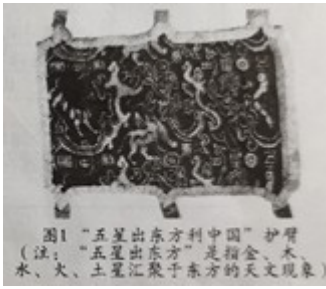 图1 “五星出东方利中国”护臂
(注：“五星出东方”是指金、木、
水、火、土星汇聚于东方的天文现象)